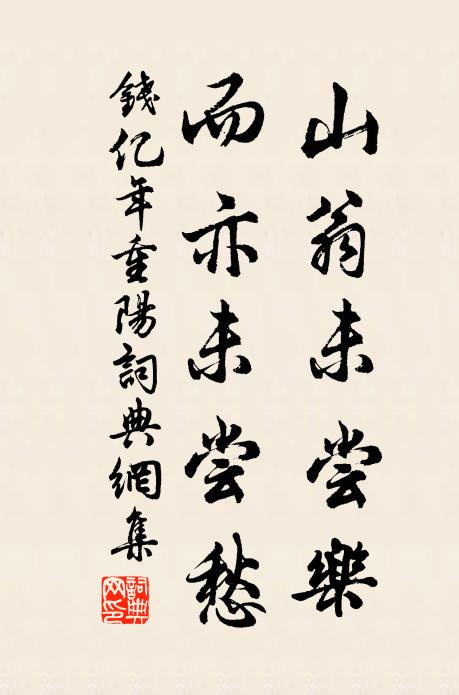 山翁未尝樂
而亦未尝愁
錢亿年重陽詞典網集
詞典网印